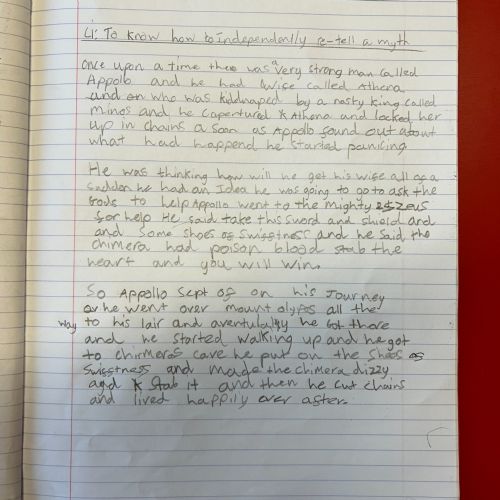 LI: To know how to independently re-tell a myth
Once upon a time there was a very strong man called
Appollo and he had wife called Athena
and who was kiddnaped by a nasty king called
minos and he capertured Athena and locked her
up in chains a soon as Appollo found out about
what had happend he started panicing
He was thinking how will he get his wife all of a
sudden he had an Idea he was going to go to ask the
Gods to help Appollo went to the mighty Zeus
for help He said take this sword and shield and
and some shoes of swiftness and he said the
chimera had poison blood stab the
heart and you will win.
So Appollo sept of on his Journey
he went over mount olypos all the
way to his lair and aventulally he got there
and he started walking up and he got
to chirmeras cave he put on the shoes of
swiftness and made the chimera dizzy
and stab it and then he cut chains
and lived happily ever after.